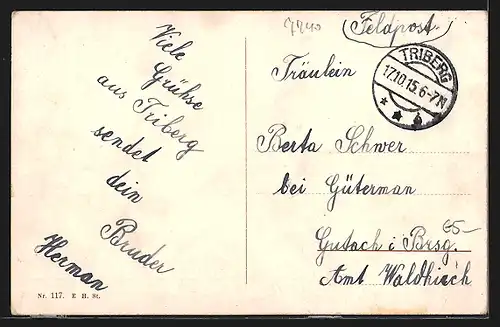 7840
(Feldpost.)
TRIBERG
17.10.15.6-7N
Viele
Grühse
aus Triberg
sendet
dein
Bruder
Herman
Fräulein
Berta Schwer
bei Güterman
Gutach i Brsg.
65-
Amt Waldkirch
Nr. 117. E. H. Bt.